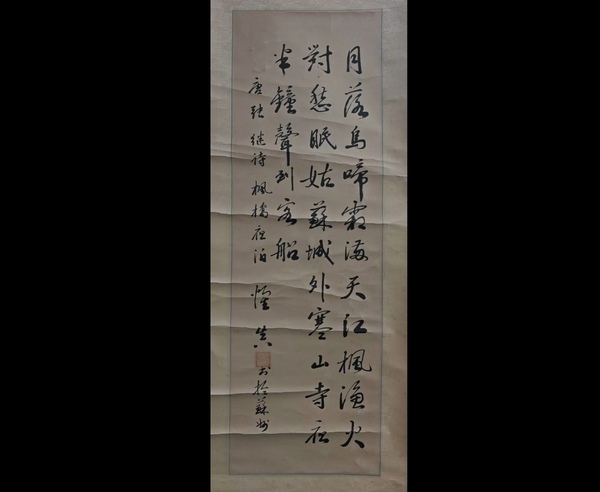 月落烏啼霜滿天江楓漁火
對愁眠姑蘇城外寒山寺夜
半鐘聲到客船
唐張继詩楓橋夜泊 书於蘇州